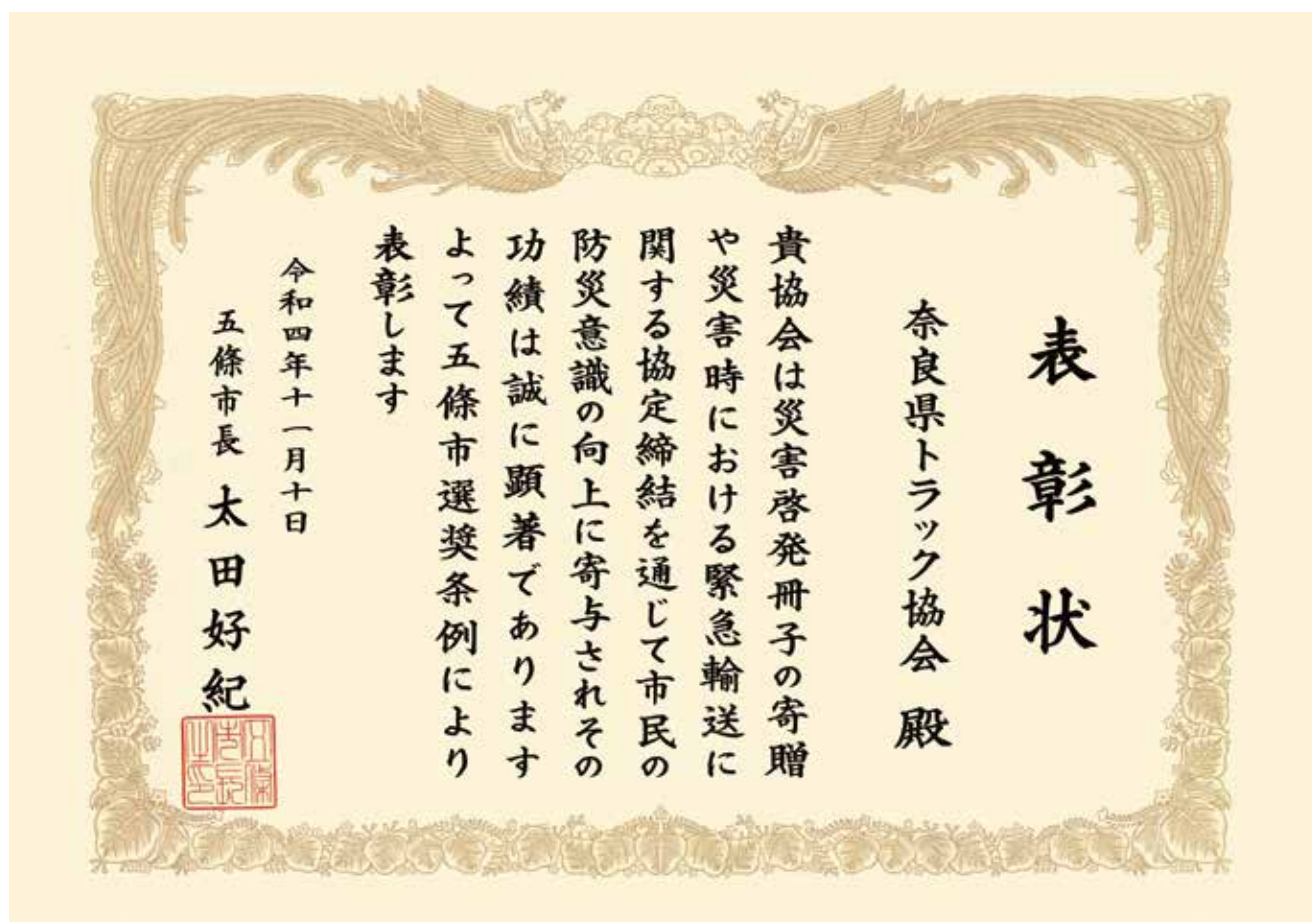 表彰状
奈良県トラック協会 殿
貴協会は災害啓発冊子の寄贈
や災害時における緊急輸送に
関する協定締結を通じて市民の
防災意識の向上に寄与されその
功績は誠に顕著であります
よって五條市選奨条例により
表彰します
令和四年十一月十日
五條市長 太田好紀
五條
市長
之印